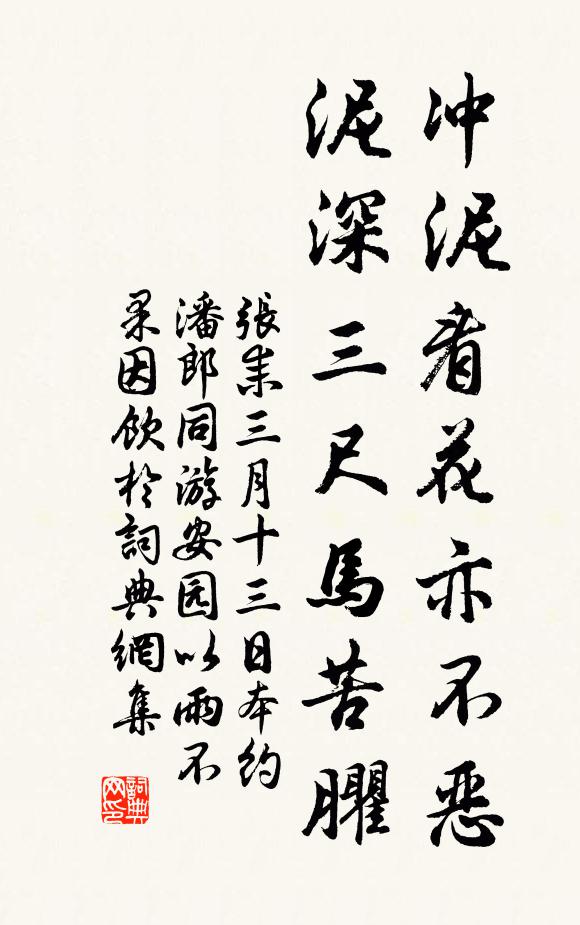 冲泥看花亦不恶
泥深三尺馬苦臞
張耒三月十三日本約
潘郎同游安园以雨不
果因飲於詞典網集
詞典网印